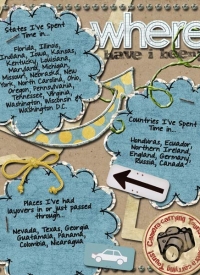 where
have i been
States I've Spent
Time in...
Florida, Illinois,
Indiana, Iowa, Kansas,
Kentucky, Louisiana,
Maryland, Michigan,
Missouri, Nebraska, New
York, North Carolina, Ohio,
Oregon, Pennsylvania,
Tennessee, Virginia,
Washington, Wisconsin &
Washington D.C.
Countries I've Spent
Time in...
Honduras, Ecuador,
Northern Ireland,
England, Germany,
Russia, Canada
Places I've had
layovers in or just passed
through...
Nevada, Texas, Georgia
Guatamala, Panama,
Colombia, Nicaragua
Camera-carrying Tourist